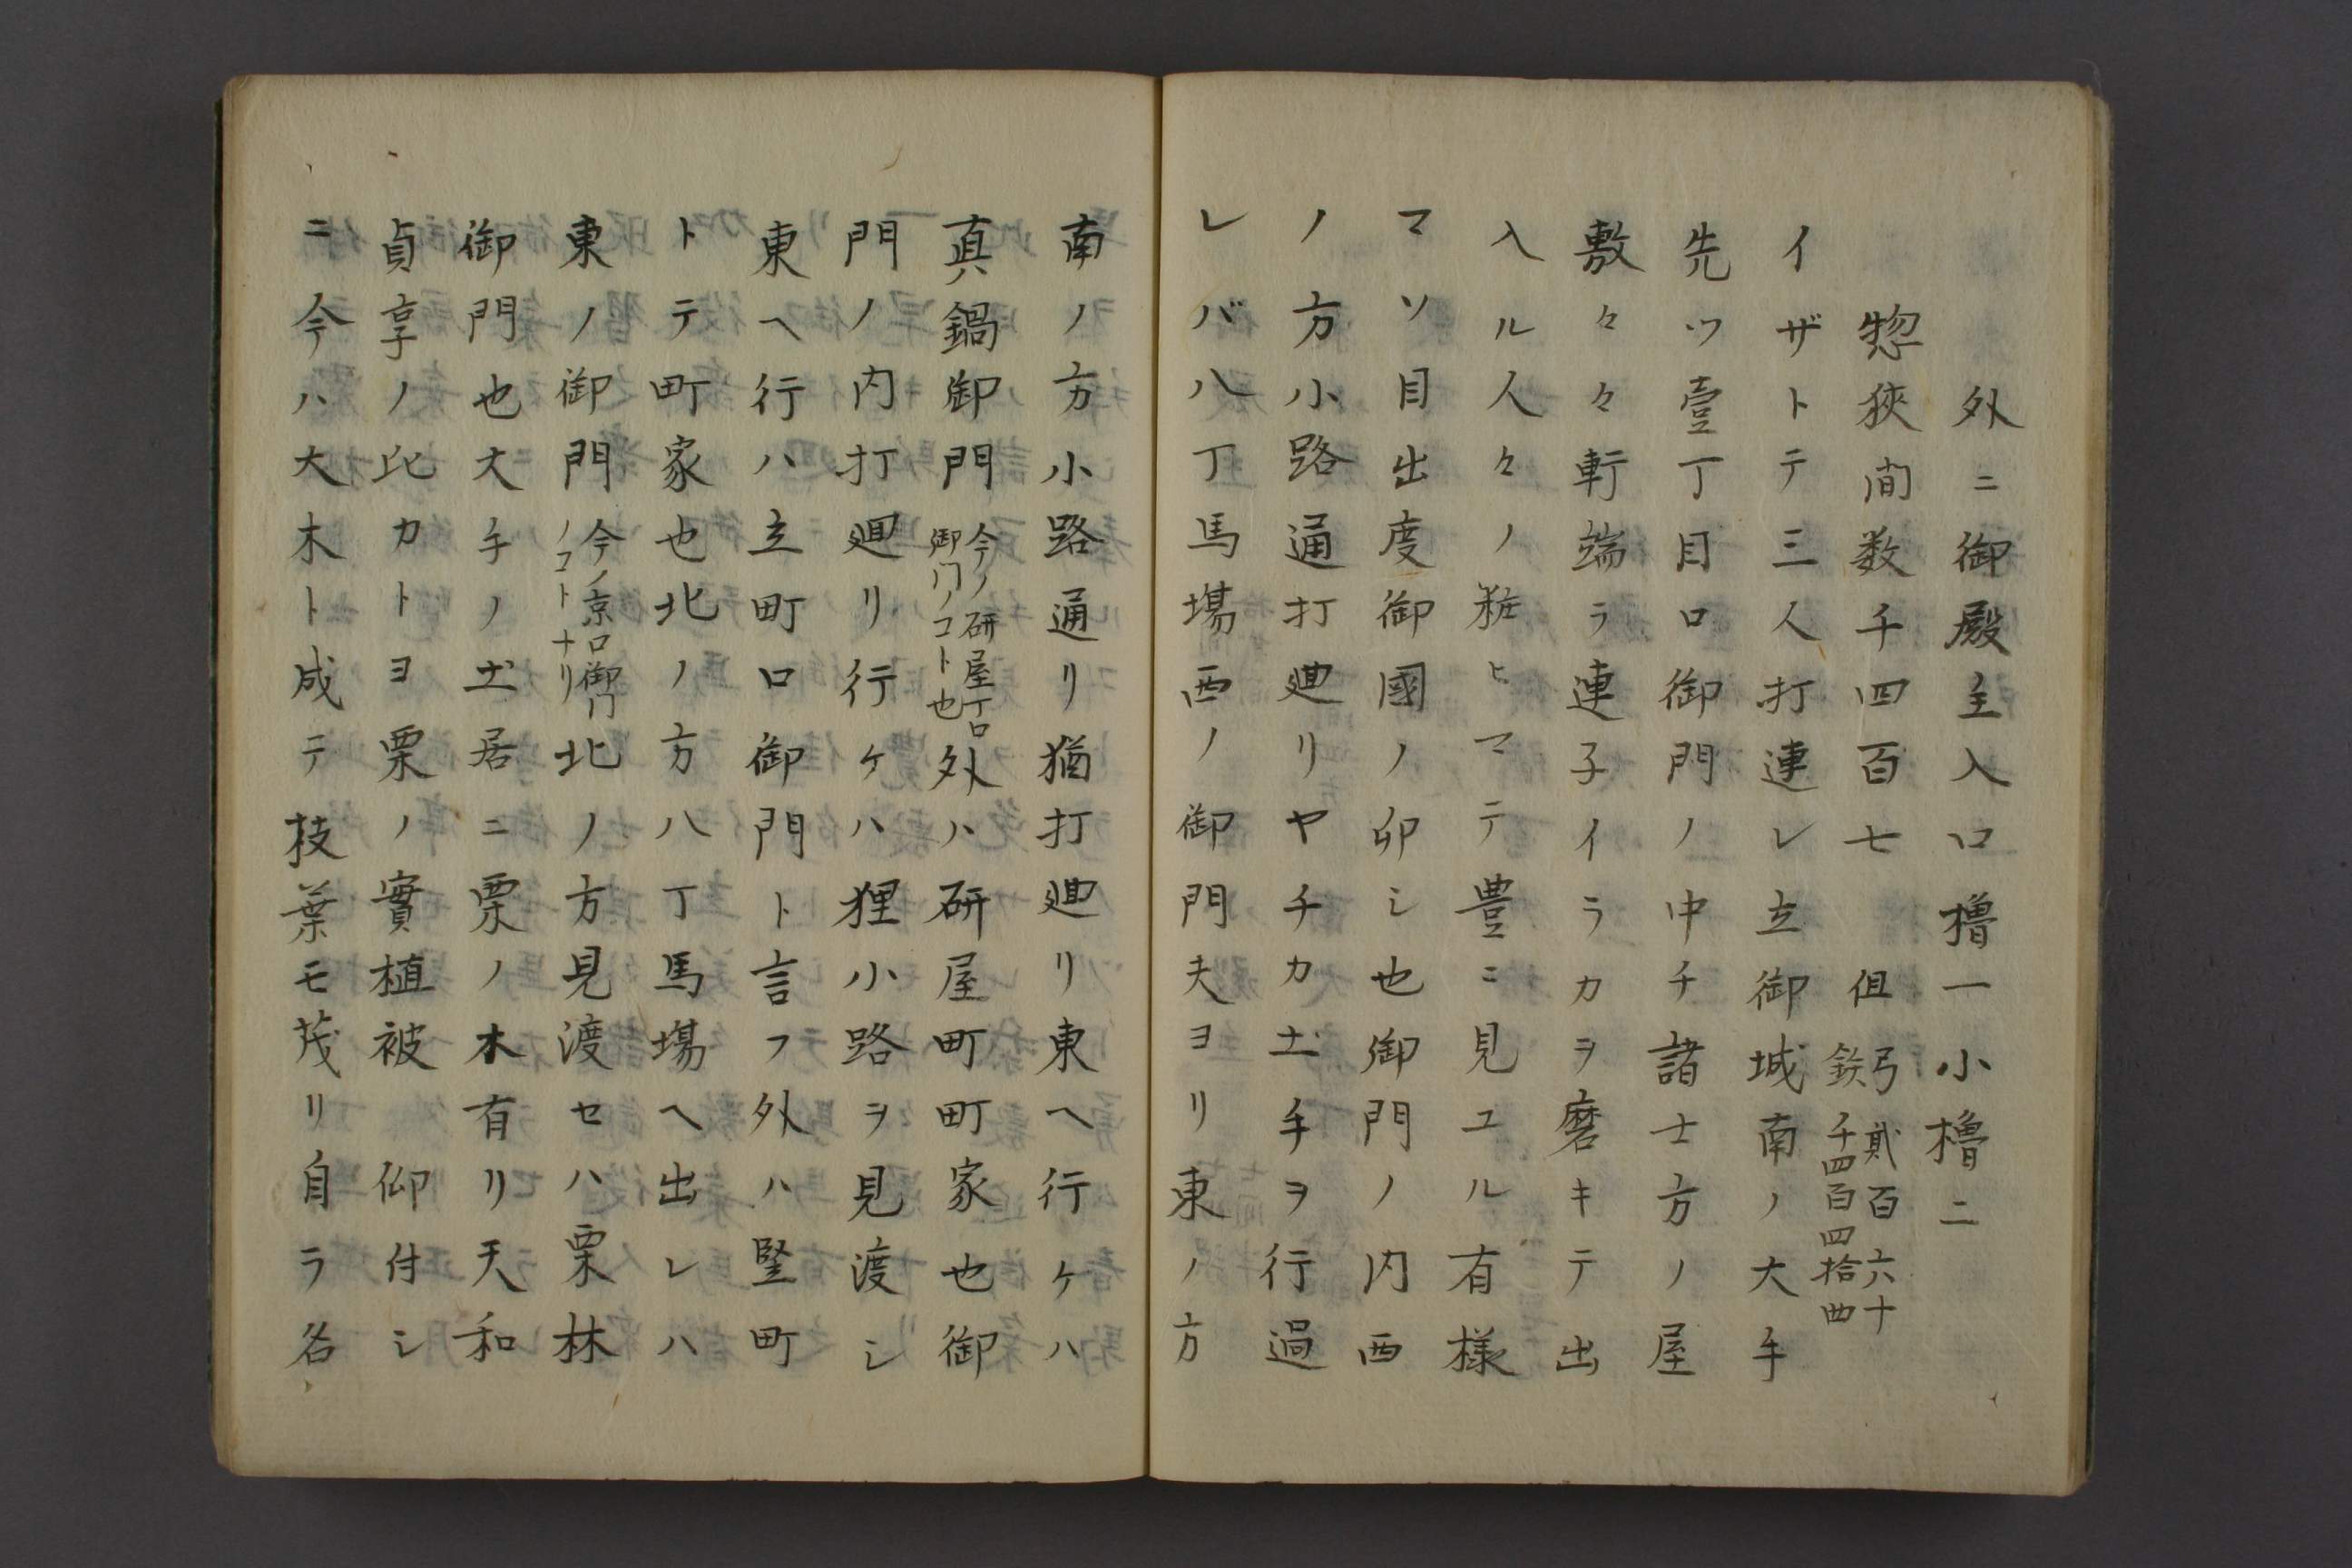 外ニ御殿主入口櫓一小櫓二
惣狹間数千四百七　但弓貳百六十
鉄千四百四拾四
イザトテ三人打連レ立御城南ノ大手
先ツ壹丁目口御門ノ中チ諸士方ノ屋
敷々々軒端ラ連子イラカヲ磨キテ出
入ル人々ノ粧ヒマテ豊ニ見ユル有様
マソ目出度御國ノ卯シ也御門ノ内西
ノ方小路通打廻リヤチカ土手ヲ行過
レバ八丁馬場西ノ御門夫ヨリ東ノ方
南ノ方小路通リ猶打廻リ東ヘ行ケハ
真鍋御門今ノ研屋丁口御門ノコト也外ハ研屋町町家也御
門ノ内打廻リ行ケハ狸小路ヲ見渡シ
東ヘ行ハ立町口御門ト言フ外ハ竪町
トテ町家也北ノ方八丁馬場ヘ出レハ
東ノ御門今ノ京口御門ノコトナリ北ノ方見渡セハ栗林
御門也大手ノ土居ニ栗ノ木有リ天和
貞享ノ比カトヨ栗ノ實植被　仰付シ
ニ今ハ大木ト成テ枝葉モ茂リ自ラ名